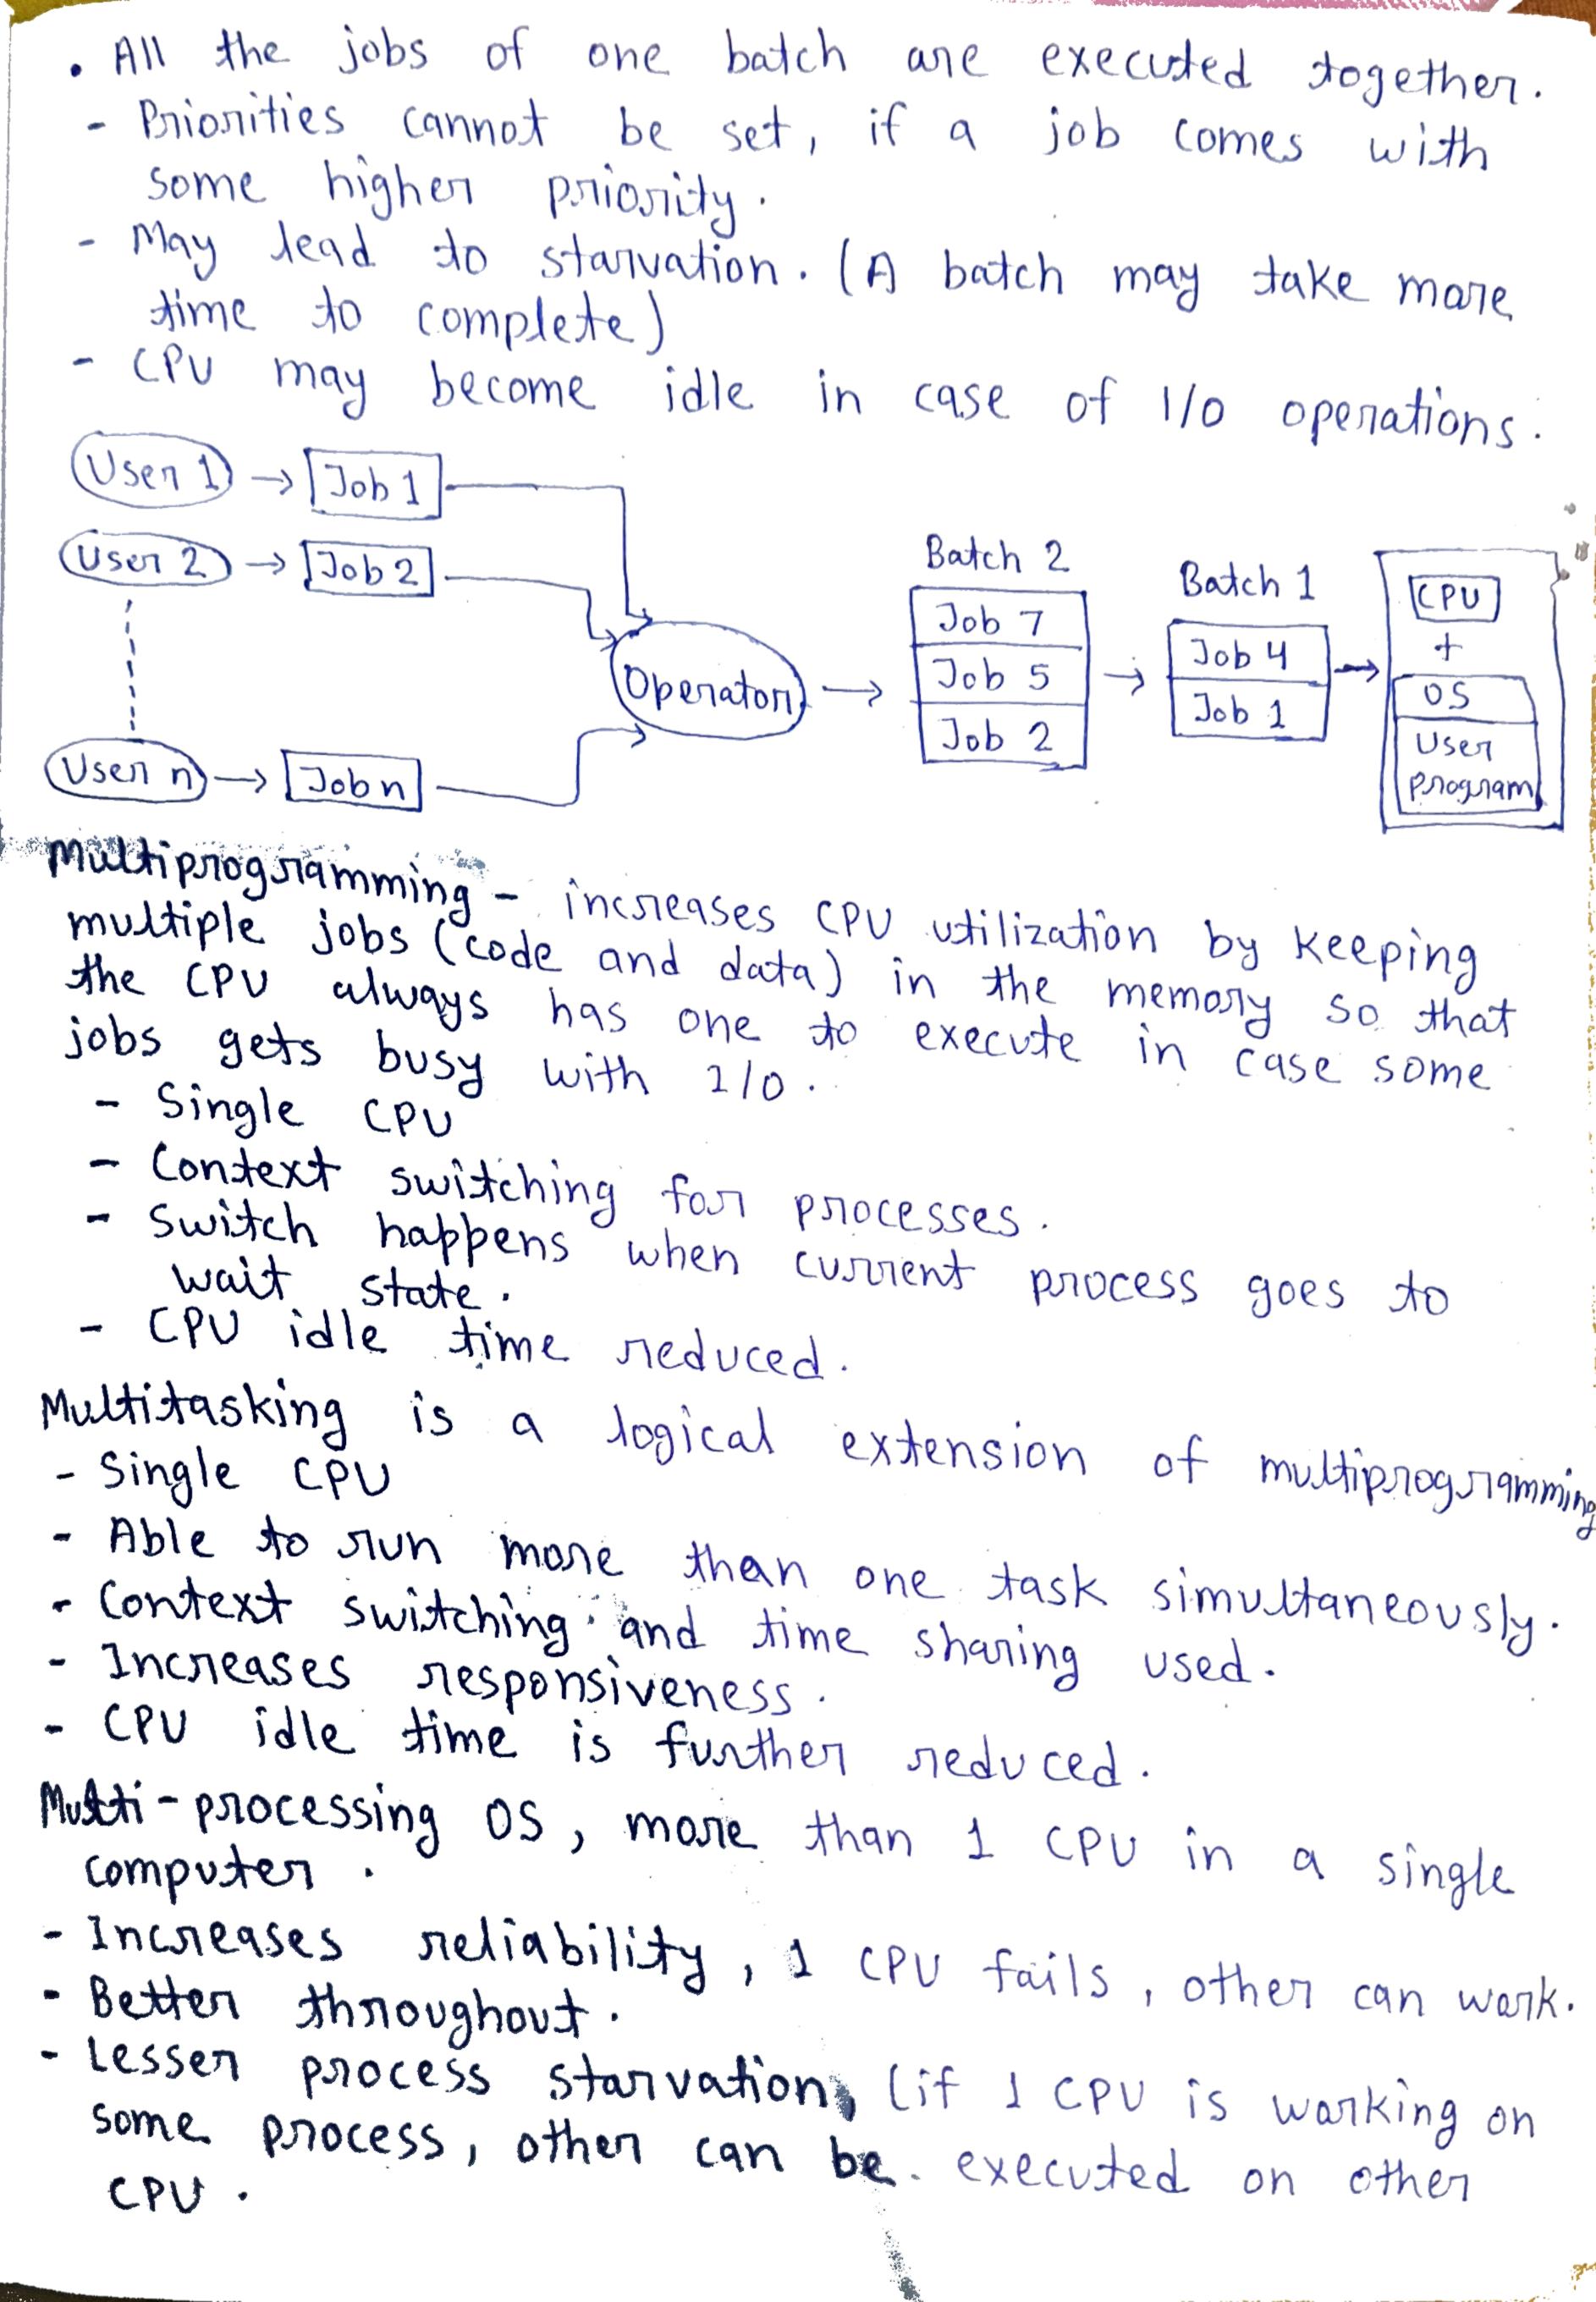 • All the jobs of one batch are executed together.
- Priorities cannot be set, if a job comes with
some higher priority.
- May lead to starvation. (A batch may take more
time to complete)
- CPU may become idle in case of I/O operations.
User 1 → Job 1
User 2 → Job 2
User n → Job n
Operator →
Batch 2
Job 7
Job 5
Job 2
→
Batch 1
Job 4
Job 1
→
CPU
+
OS
User
program
Multiprogramming - increases CPU utilization by keeping
multiple jobs (code and data) in the memory so that
the CPU always has one to execute in case some
jobs gets busy with I/O.
- Single CPU
- Context switching for processes.
- Switch happens when current process goes to
wait state.
- CPU idle time reduced.
Multitasking is a logical extension of multiprogramming
- Single CPU
- Able to run more than one task simultaneously.
- Context switching and time sharing used.
- Increases responsiveness.
- CPU idle time is further reduced.
Multi-processing OS, more than 1 CPU in a single
computer.
- Increases reliability, 1 CPU fails, other can work.
- Better throughout.
- Lesser process starvation, (if 1 CPU is working on
some process, other can be executed on other
CPU.